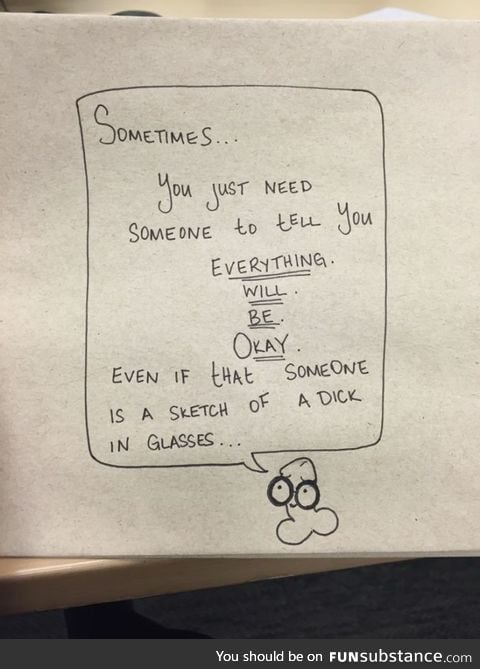 Sometimes...
You just need
someone to tell you
Everything.
Will.
Be.
Okay.
Even if that someone
is a sketch of a dick
in glasses...
You should be on FUNsubstance.com